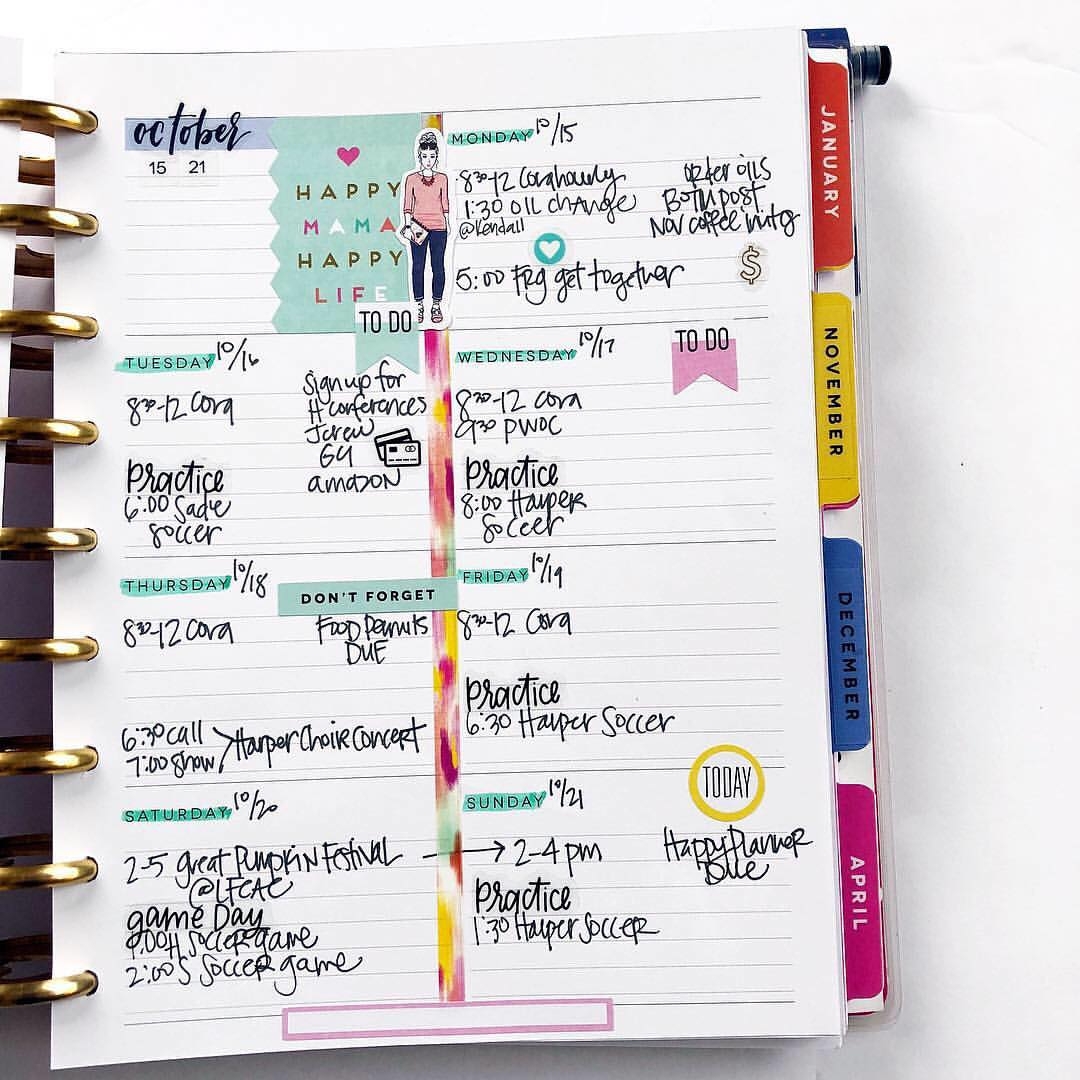 october
15 21
HAPPY
MAMA
HAPPY
LIFE
MONDAY 10/15
8:30-12 Cora
1:30 oil change
@Kendall
5:00 Frg get together
order oils
Both post
Nov coffee
$
TO DO
TUESDAY 10/16
8:30-12 Cora
Practice
6:00 Sadie
Soccer
sign up for
H conferences
Jcrew
amazon
WEDNESDAY 10/17
8:30-12 Cora
9:30 PWOC
Practice
8:00 Harper
Soccer
TO DO
THURSDAY 10/18
8:30-12 Cora
6:30 call
7:00 show
Harper Choir Concert
DON'T FORGET
Food
DUE
FRIDAY 10/19
8:30-12 Cora
Practice
6:30 Harper Soccer
SATURDAY 10/20
2-5 great Pumpkin Festival
@LFCAC
game Day
9:00 H Soccer game
2:00 S Soccer game
SUNDAY 10/21
2-4 pm
Practice
1:30 Harper Soccer
TODAY
Happy Planner
JANUARY
NOVEMBER
DECEMBER
APRIL